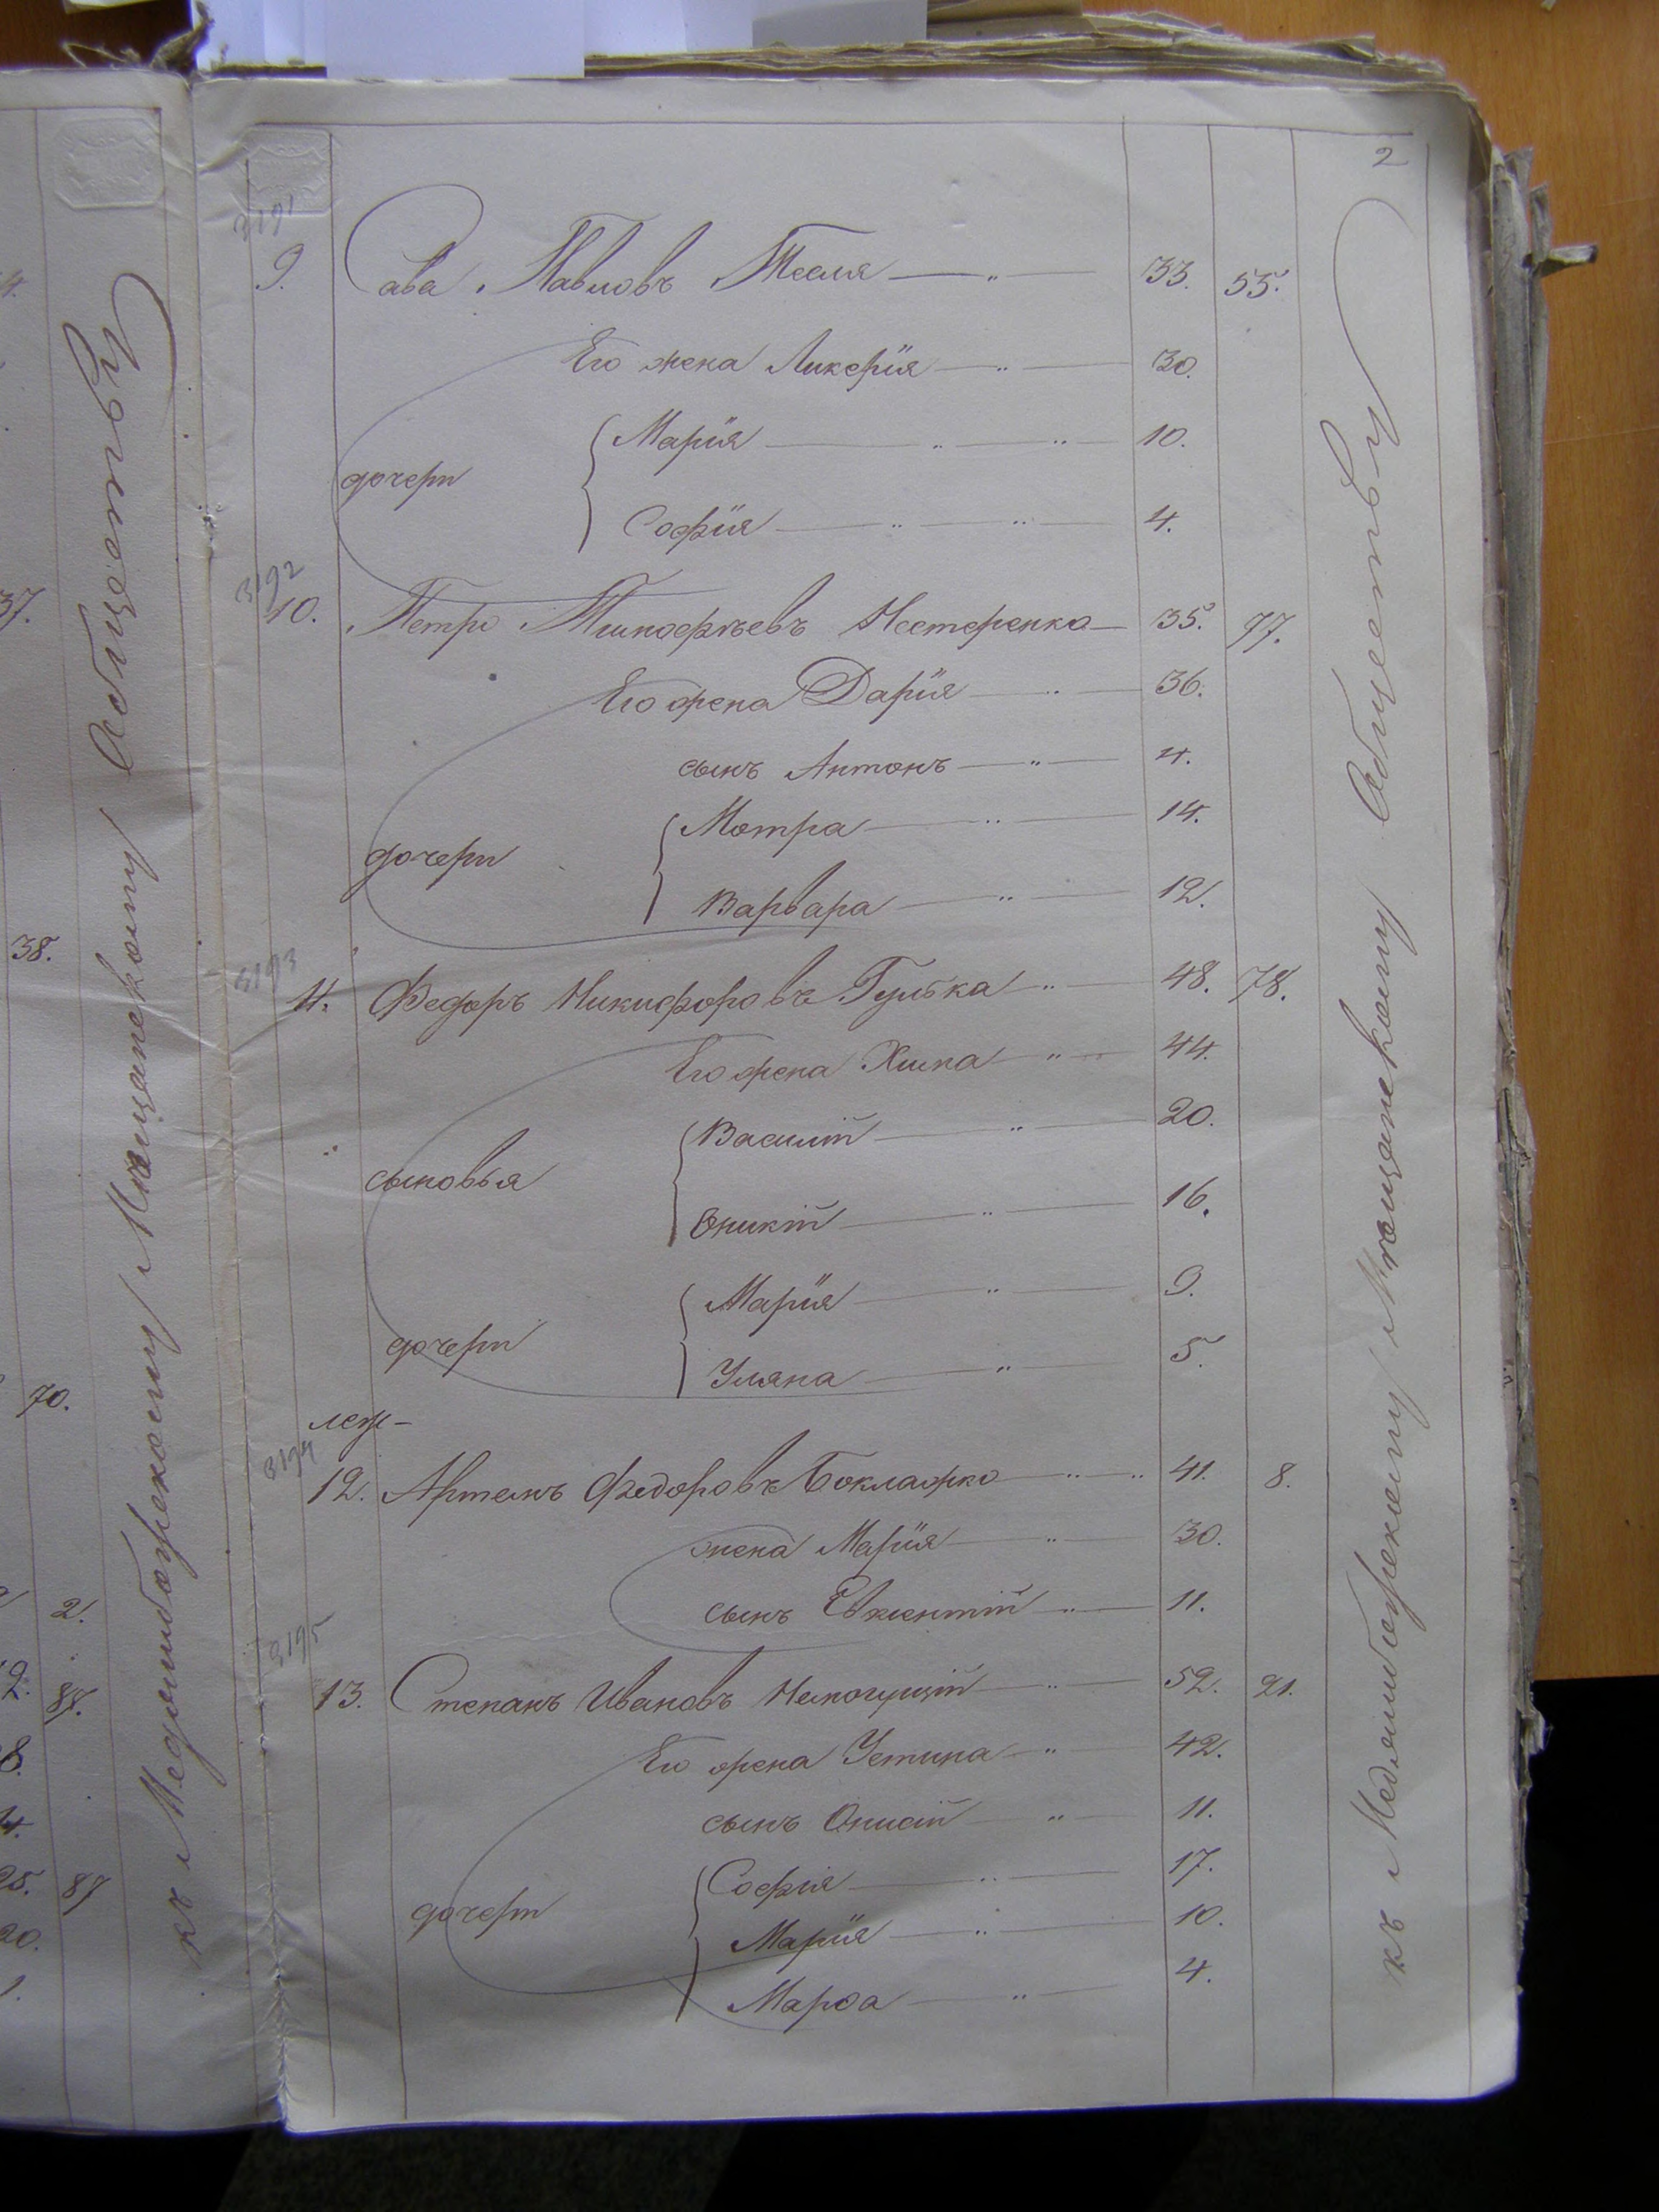 2
3191
9. Сава Павловъ Тесля — „ — 33. 55.
Его жена Ликерія — „ — 30.
дочери
Марія — „ — „ — 10.
Софія — „ — „ — 4.
3192
10. Петро Тимофѣевъ Нестеренко — 35. 97.
Его жена Дарія — „ — 36.
сынъ Антонъ — „ — 4.
дочери
Мотра — „ — 14.
Варвара — „ — 12.
3193
11. Федоръ Никифоровъ Гулька „ — 48. 78.
Его жена Химка „ — 44.
сыновья
Василій — „ — 20.
Оникій — „ — 16.
дочери
Марія — „ — 9.
Уляна — „ — 5.
3194
12. Артемъ Федоровъ Боклажко — „ — „ 41. 8.
жена Марія — „ — 30.
сынъ Евментій — „ — 11.
3195
13. Степанъ Ивановъ Немогущій — „ — 52. 21.
Его жена Устина — „ 42.
сынъ Онисій — „ — 11.
дочери
Софія — „ — 17.
Марія — „ — 10.
Марѳа — „ — 4.
къ Меджибожскому Мѣщанскому Обществу
къ Меджибожскому Мѣщанскому Обществу
37.
38.
70.
2.
87